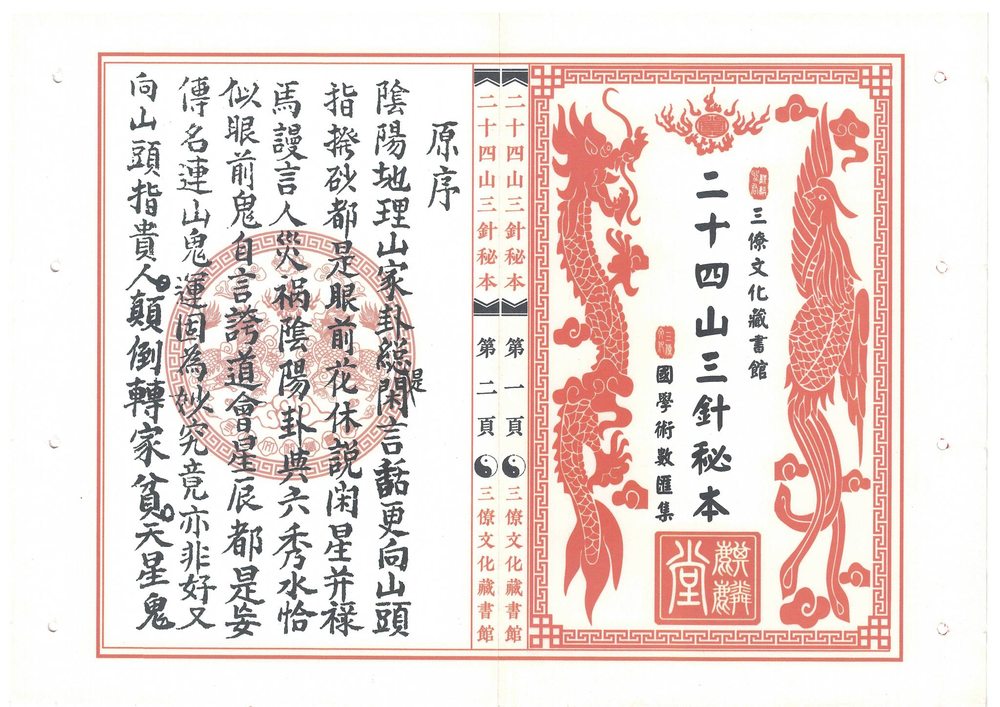 三僚文化藏書館
二十四山三針秘本
國學術數匯集
麒麟堂
二十四山三針秘本 第一頁 三僚文化藏書館
二十四山三針秘本 第二頁 三僚文化藏書館
原序
陰陽地理山家卦總是閑言話更向山頭
指撥砂都是眼前花休說闲星并祿
馬謾言人災祸陰陽卦典六秀水恰
似眼前鬼自言誇道會星辰都是妄
傳名連山鬼運因為妙究竟亦非好又
向山頭指貴人顛倒轉家貧天星鬼